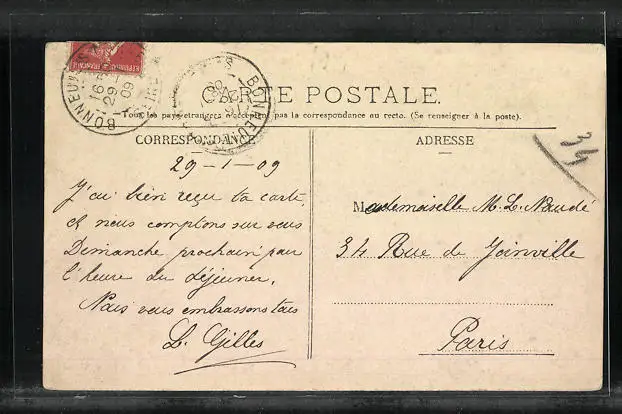 RÉPUBLIQUE FRANÇAISE
BONNEUIL
16 5
29 -1
09
CARTE POSTALE.
Tous les pays étrangers n'acceptent pas la correspondance au recto. (Se renseigner à la poste).
CORRESPONDANCE
29-1-09
J'ai bien reçu ta carte,
et nous comptons sur vous
Dimanche prochain pour
l'heure du déjeuner.
Nous vous embrassons tous
L. Gilles
ADRESSE
34
Mademoiselle M. L. Naudé
34 Rue de Joinville
Paris